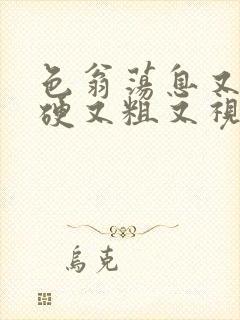 色翁荡息又
硬又粗又视
乌克